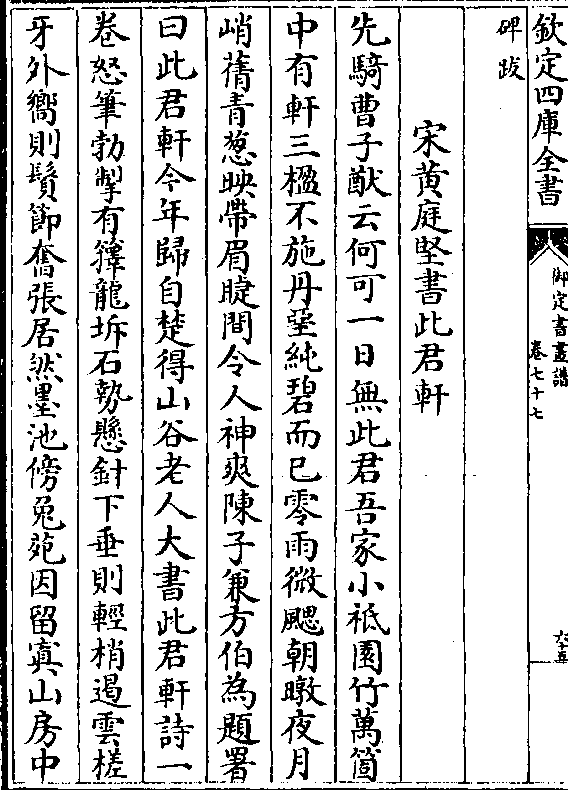 欽定四庫全書
御定書畫譜
卷七十七
碑跋
宋黃庭堅書此君軒
先騎曹子猷云何可一日無此君吾家小祗園竹萬箇
中有軒三楹不施丹堊純碧而已零雨微颸朝暾夜月
峭蒨青葱映帶眉睫間令人神爽陳子兼方伯為題署
曰此君軒今年歸自楚得山谷老人大書此君軒詩一
卷怒筆勃掣有籜龍坼石勢懸針下垂則輕梢遏雲槎
牙外嚮則鬚節奮張居然墨池傍兔苑因留寘山房中